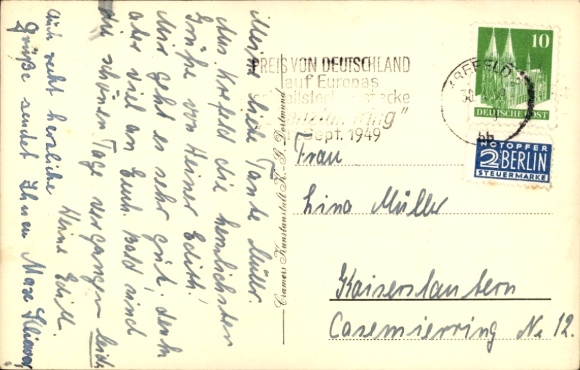 Meine liebe Tante Müller.
Aus Krefeld die herzlichsten
Grüße von Heiner Edith!
Mir geht es sehr gut, denke
aber viel an Euch. Bald sind
die schönen Tage vergangen leider
Deine Edith.
Auch recht herzliche
Grüße sendet Ihnen Max
Cramers Kunstanstalt Dortmund
PREIS VON DEUTSCHLAND
auf Europas
Sept. 1949
KREFELD
bb
10
DEUTSCHE POST
NOTOPFER
2 BERLIN
STEUERMARKE
Frau
Lina Müller
Kaiserslautern
Casemierring No 12.